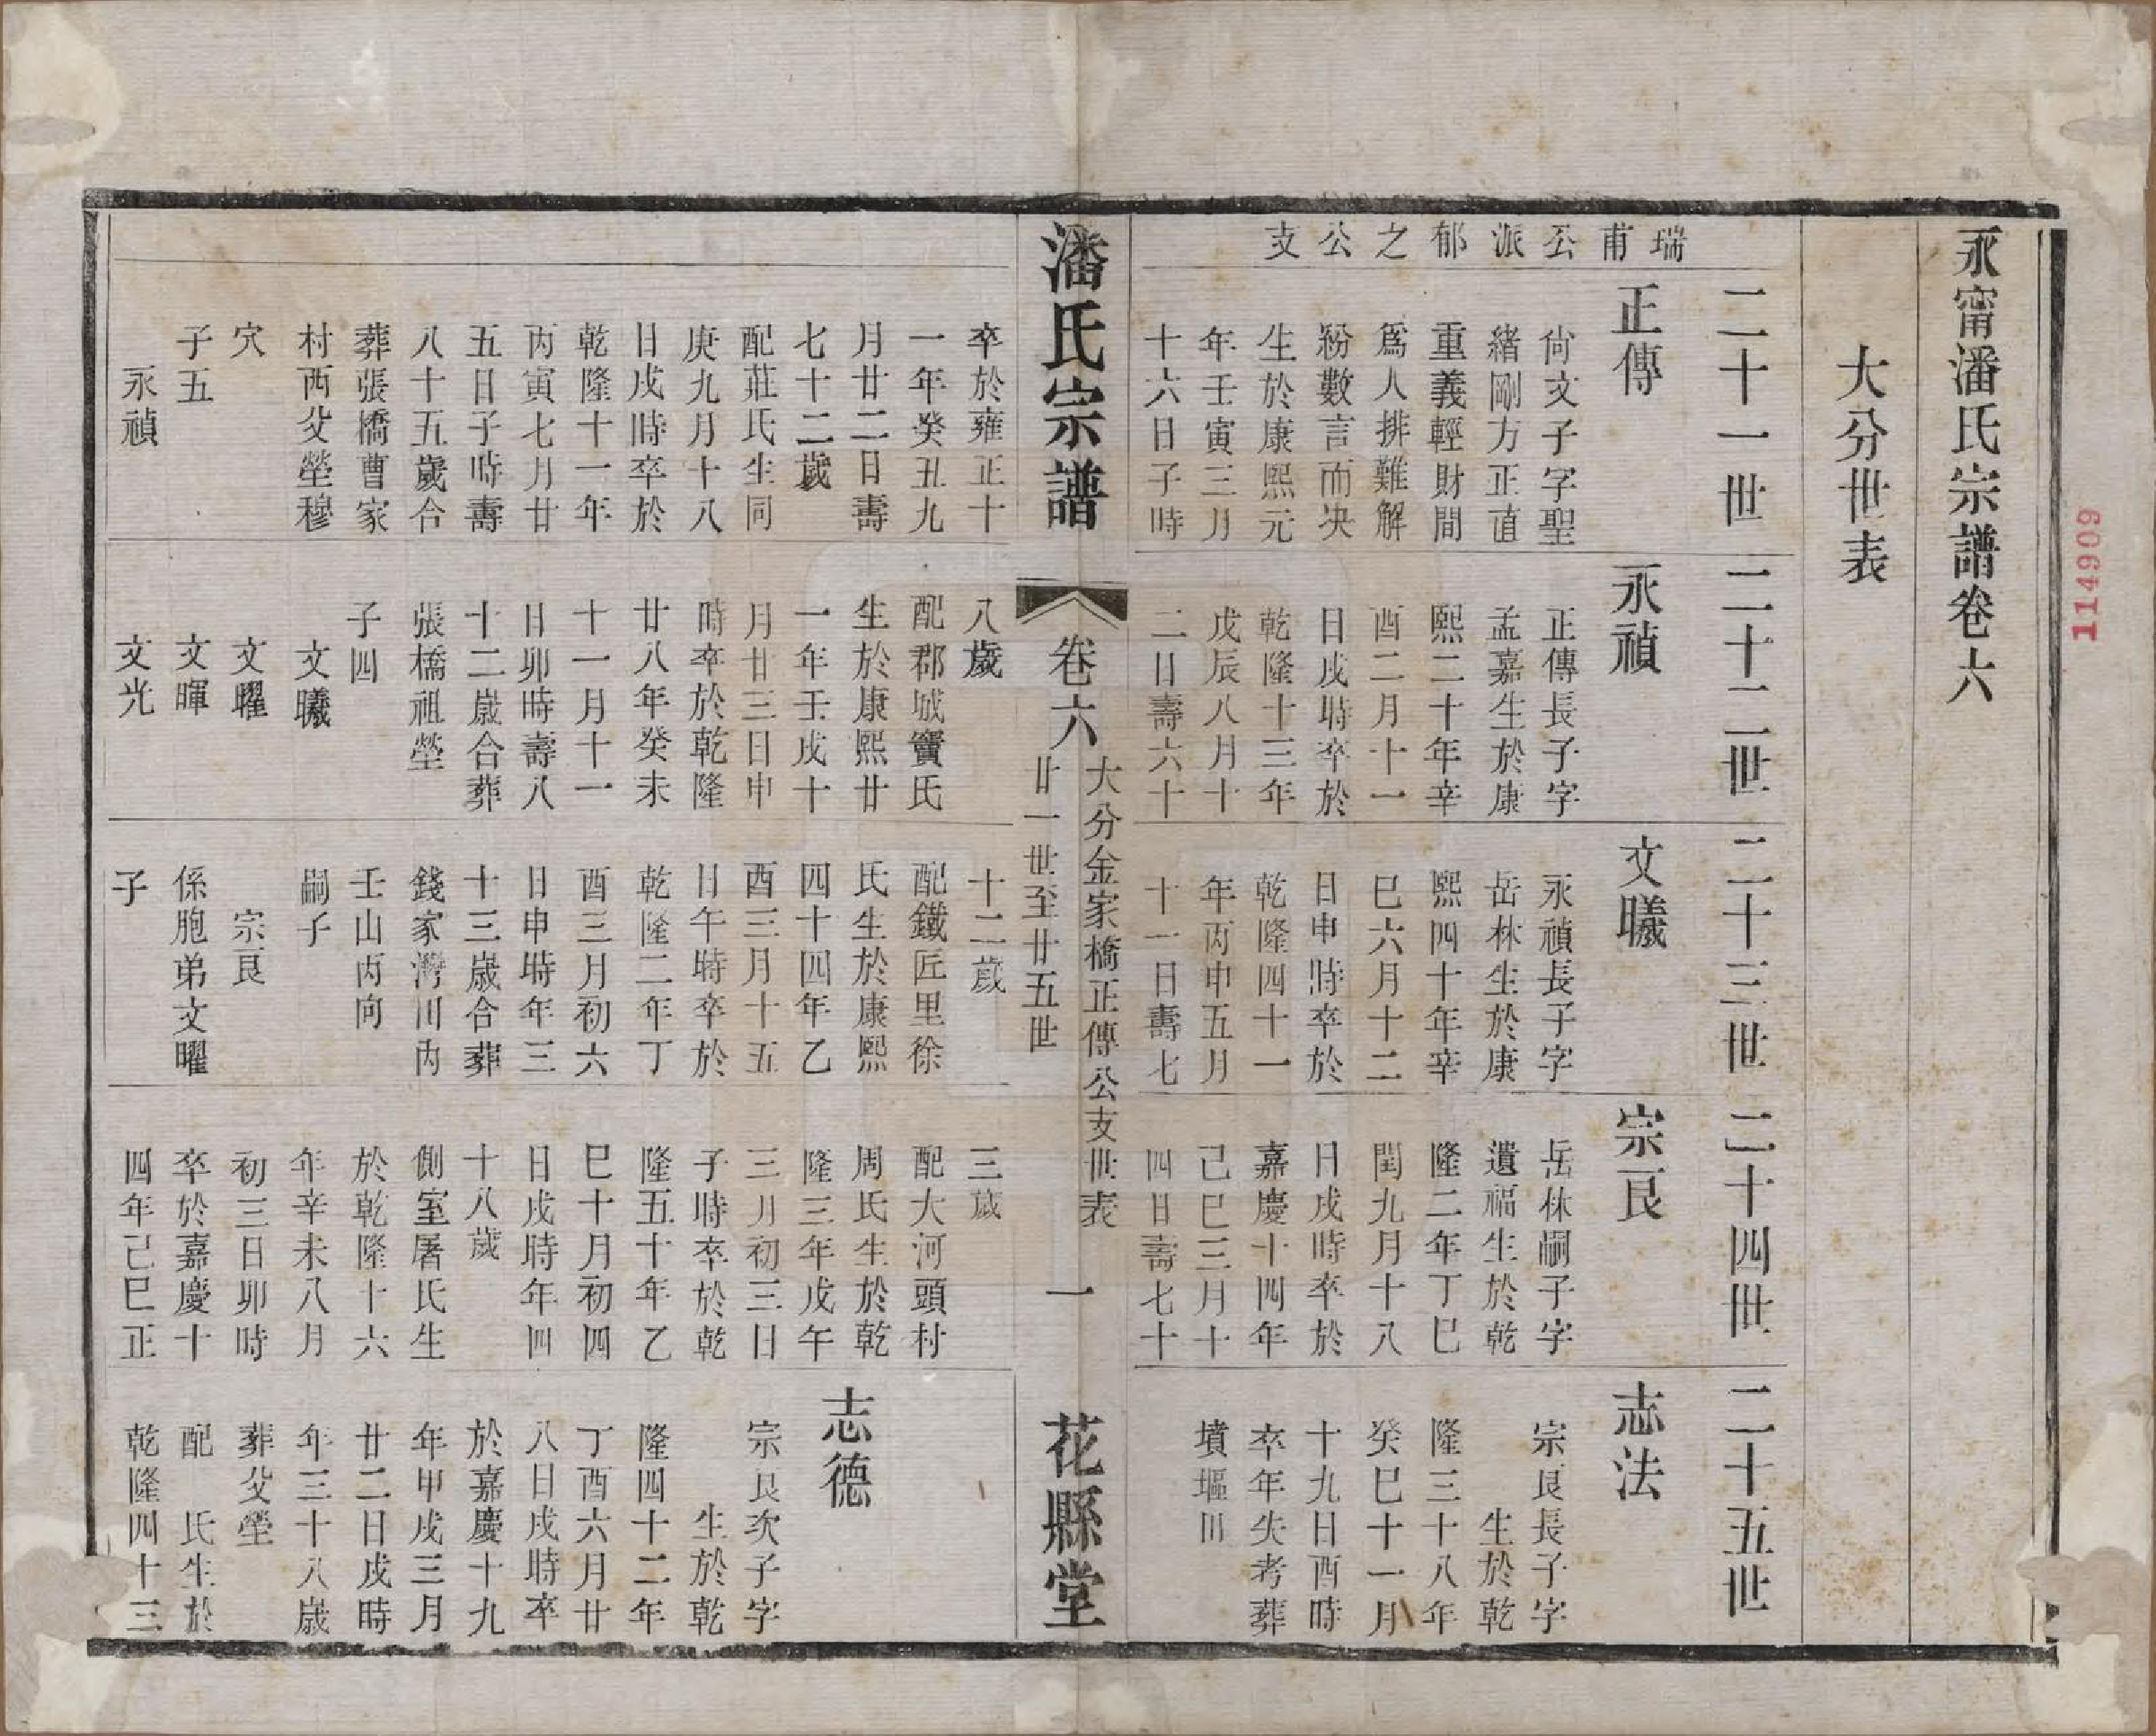 永甯潘氏宗譜卷六
大分世表
瑞甫公派郁之公支
二十一世
正傳
尙文子字聖
緒剛方正直
重義輕財間
爲人排難解
紛數言而決
生於康熙元
年壬寅三月
十六日子時
卒於雍正十
一年癸丑九
月廿二日壽
七十二歲
配莊氏生同
庚九月十八
日戌時卒於
乾隆十一年
丙寅七月廿
五日子時壽
八十五歲合
葬張橋曹家
村西父塋穆
穴
子五
永禎
二十二世
永禎
正傳長子字
孟嘉生於康
熙二十年辛
酉二月十一
日戌時卒於
乾隆十三年
戊辰八月十
二日壽六十
八歲
配郡城竇氏
生於康熙廿
一年壬戌十
月廿三日申
時卒於乾隆
廿八年癸未
十一月十一
日卯時壽八
十二歲合葬
張橋祖塋
子四
文曦
文曜
文暉
文光
二十三世
文曦
永禎長子字
岳林生於康
熙四十年辛
巳六月十二
日申時卒於
乾隆四十一
年丙申五月
十一日壽七
十二歲
配鐵匠里徐
氏生於康熙
四十四年乙
酉三月十五
日午時卒於
乾隆二年丁
酉三月初六
日申時年三
十三歲合葬
錢家灣川內
壬山丙向
嗣子
宗良
係胞弟文曜
子
二十四世
宗良
岳林嗣子字
遺福生於乾
隆二年丁巳
閏九月十八
日戌時卒於
嘉慶十四年
己巳三月十
四日壽七十
三歲
配大河頭村
周氏生於乾
隆三年戊午
三月初三日
子時卒於乾
隆五十年乙
巳十月初四
日戌時年四
十八歲
側室屠氏生
於乾隆十六
年辛未八月
初三日卯時
卒於嘉慶十
四年己巳正
二十五世
志法
宗良長子字
生於乾
隆三十八年
癸巳十一月
十九日酉時
卒年失考葬
墳堰川
志德
宗良次子字
生於乾
隆四十二年
丁酉六月廿
八日戌時卒
於嘉慶十九
年甲戌三月
廿二日戌時
年三十八歲
葬父塋
配　氏生於
乾隆四十三
潘氏宗譜
卷六
大分金家橋正傳公支世表
廿一世至廿五世
一
花縣堂
114909